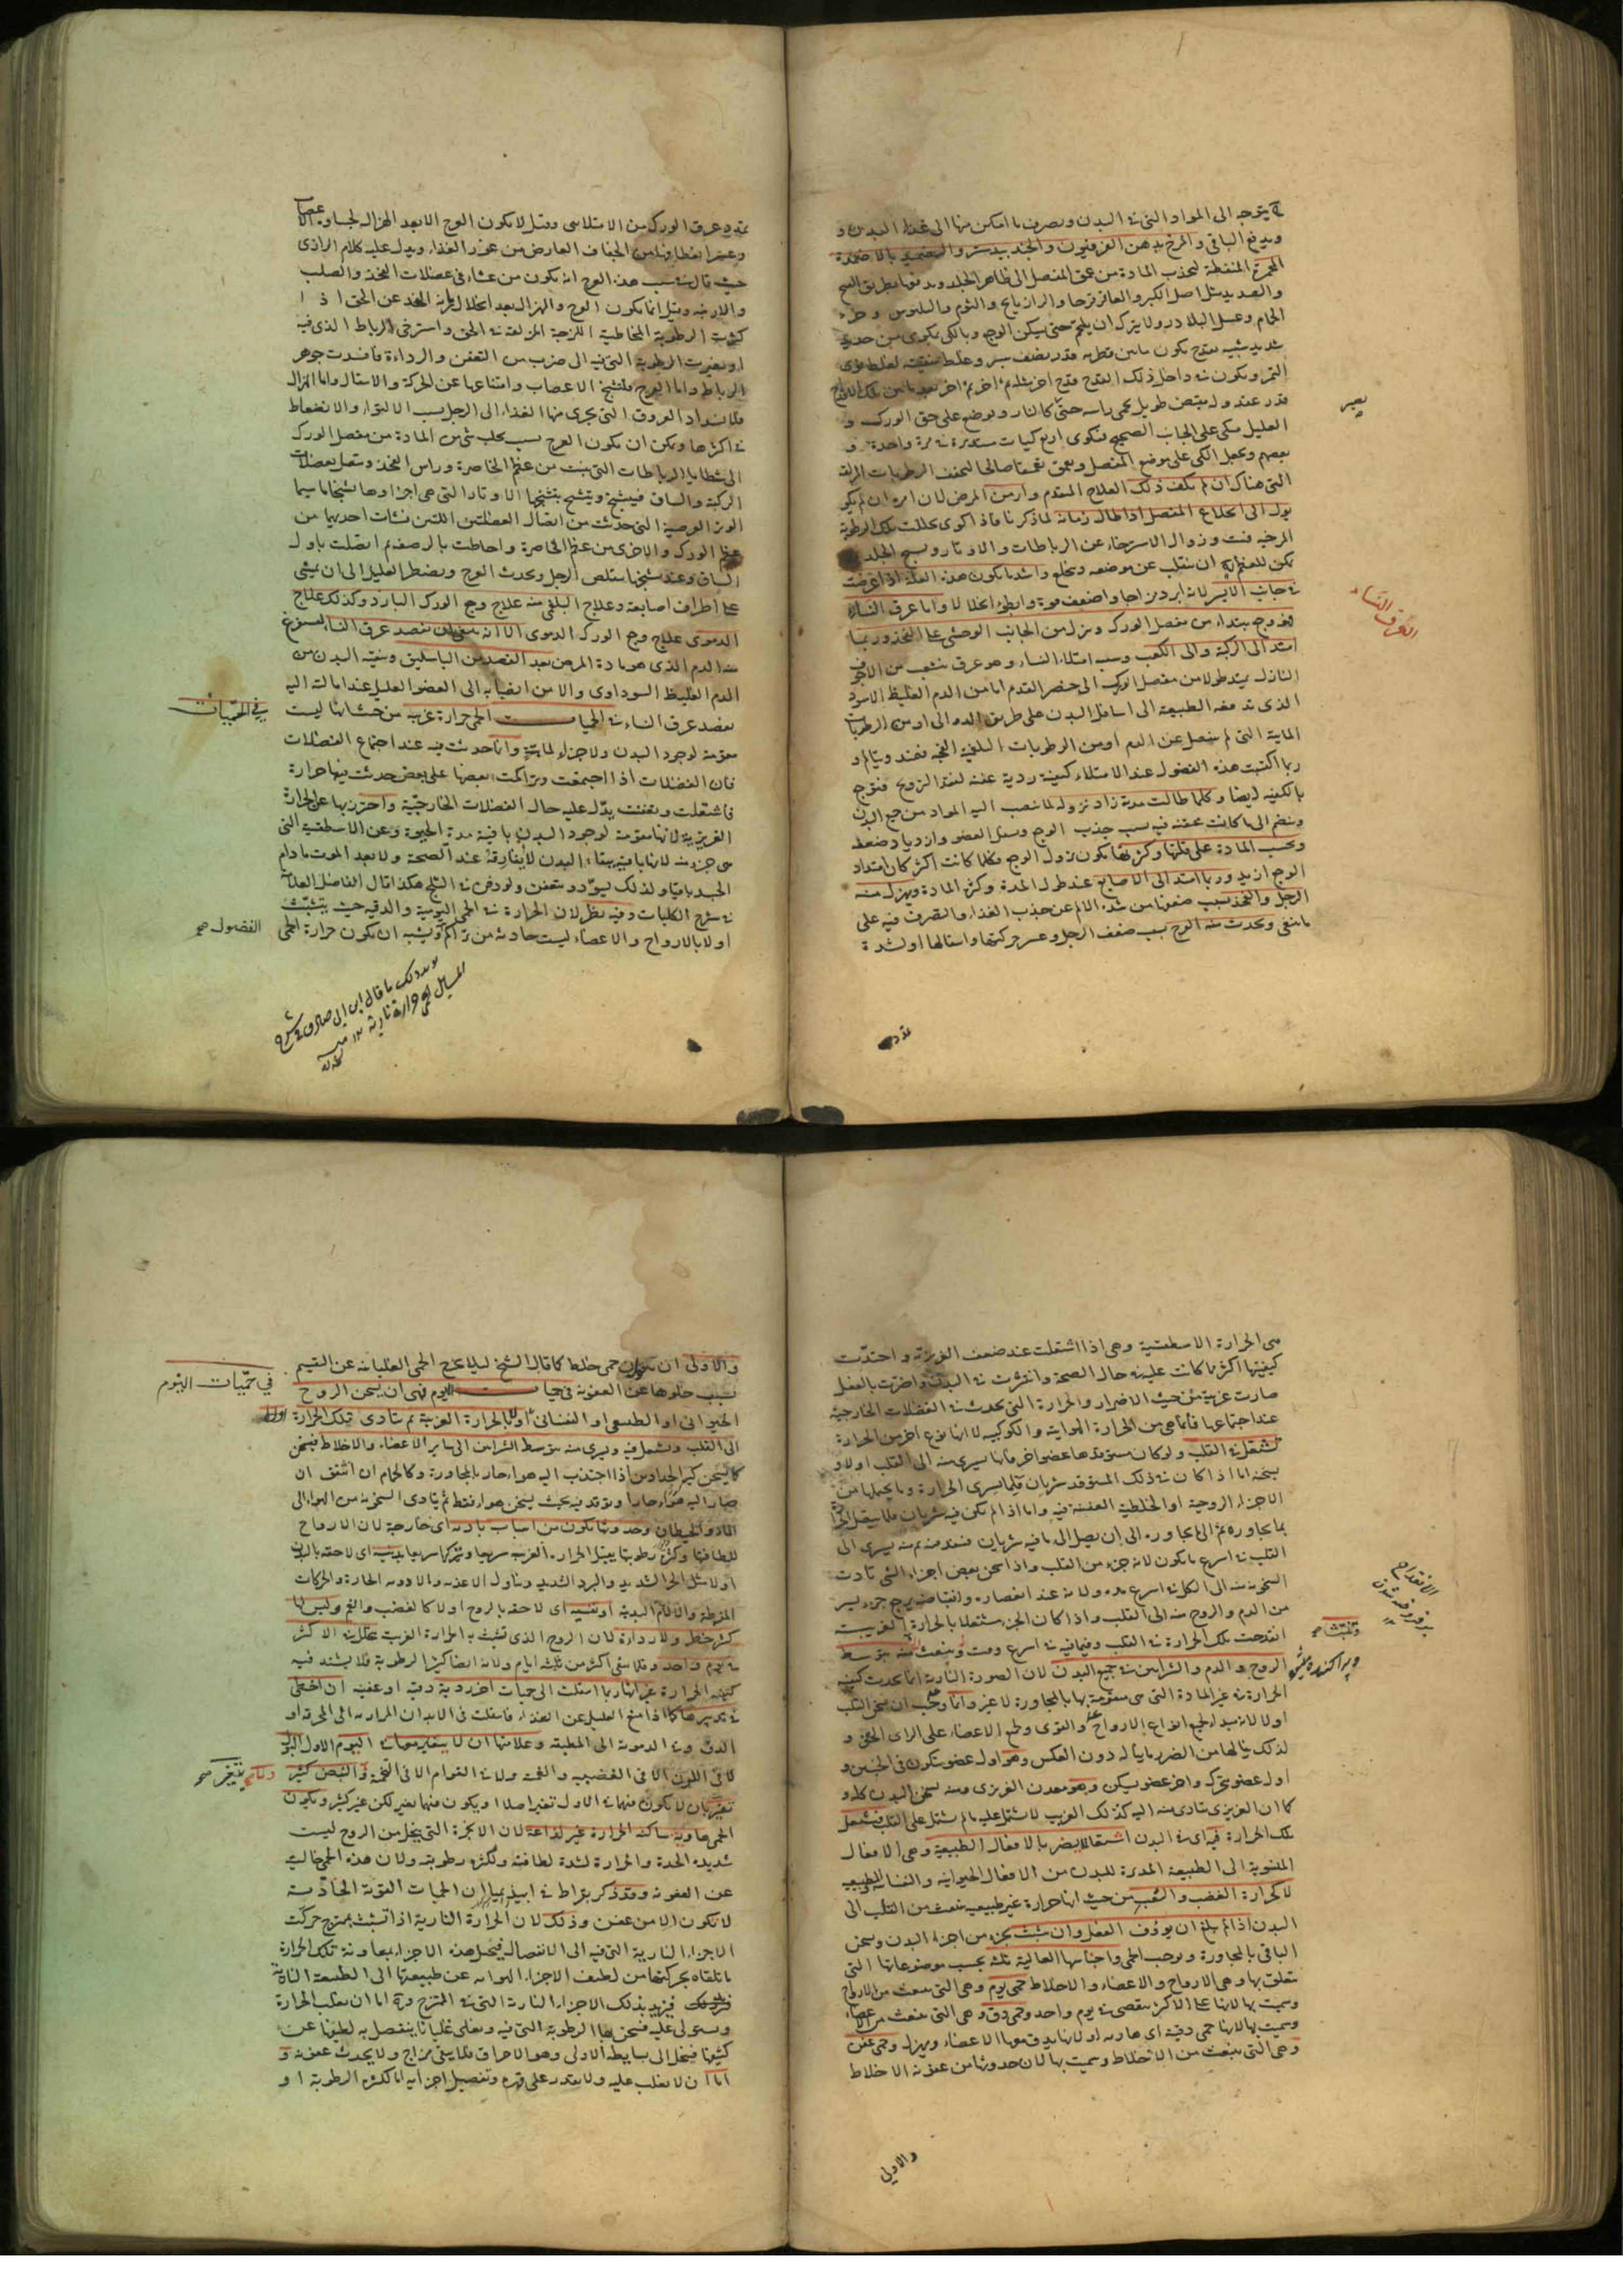 يتوجه الى المواد التى فى البدن ويصرف ما امكن منها الى غذاء البدن و
ويدفع الباقى والمرخ بدهن الفرفيون والجندبيدستر والتضميد بالاضمدة
المحمرة المنفطة لتجذب المادة من عمق المفصل الى ظاهر الجلد ويدفعها بطريق
والصديد مثل اصل الكبر والعاقرقرحا والرازيانج والثوم والبلبوس وخرء
الحمام وعسل البلادر ولا يترك ان يلتحم حتى يسكن الوجع وبالكى يكوى من حديد
شديد شبيه بقدح يكون مابين قطريه قدر نصف شبر وغلظ شفته كغلظ نوى
التمر ويكون فى داخل ذلك القدح قدح اخر مثله ثم اخر بعد ما بين تلك الاقداح
قدر عقد وله مقبض طويل يحمى راسه حتى كالنار ويوضع على حق الورك و
العليل متكى على الجانب الصحيح فيكوى اربع كيات مستديرة فى مرة واحدة و
بعضهم ويجعل الكى على موضع المفصل ويعمق تعميقا صالحا لتجفف الرطوبات المزلقة
التى هناك ان لم يكف ذلك العلاج المتقدم وازمن المرض لان امره ان لم يكو
يول الى انخلاع المفصل اذا طال زمانه لما ذكرنا فاذا كوى تحللت تلك الرطوبة
المرخيه فنت وزوال الاسترخاء عن الرباطات والاوتار و الجلد
يكن للعظم ان ينقلب عن موضعه وينخلع واشد ما يكون هذه العلة اذا عرضت
فى جانب الايسر لانه ابرد مزاجا واضعف قوة وابطئ انحلالا واما عرق النساء
فهو وجع يبتدا من مفصل الورك وينزل من الجانب الوحشى على الفخذ وربما
امتد الى الركبة والى الكعب وسببه امتلاء النساء وهو عرق ينشعب من الاجوف
النازل يمتد طولا من مفصل الورك الى خنصر القدم اما من الدم الغليظ الاسود
الذى تدفعه الطبيعة الى اسافل البدن على طريق الدوالى او من الرطوبات
المائية التى لم تنفصل عن الدم او من الرطوبات البلغمية الفجه فيمتد ويتالم و
ربما اكتسبت هذه الفضول عند الامتلاء كيفية ردية عفنه لفقد التروح فتوجع
بالكيفيه ايضا وكلما طالت مدته زاد نزوله لما ينصب اليه المواد من جميع البدن
وينضم الى ما كانت محتقنة فيه بسبب جذب الوجع وتسفل العضو وازدياد ضعفه
وبحسب المادة على قلتها وكثرتها يكون نزول الوجع فكلما كانت اكثر كان امتداد
الوجع ازيد وربما امتد الى الاصابع عند طول المدة وكثرة المادة ويهزل منه
الرجل والفخذ بسبب ضعفها من شدة الالم عن جذب الغذاء والتصرف فيه على
ما ينبغى ويحدث منه العرج بسبب ضعف الرجل وعسر حركتها وانتقالها او لشدة
العرق النساء
تمدد
تمدد عرق الورك من الامتلاء وقيل لا يكون العرج الا بعد الهزال لجساوة الاعصاب
حيث قال سبب هذه العرج انه يكون من عشاء فى عضلات الفخذ والصلب
كثرت الرطوبة المخاطية اللزجة المزلقة فى الحق واسترخى الرباط الذى فيه
او تغيرت الرطوبة التى فيه الى ضرب من التعفن والرداءة فافسدت جوهر
الرباط واما العرج فلتشنج الاعصاب وامتناعها عن الحركة والانتقال واما الهزال
فلانسداد العروق التى يجرى منها الغذاء الى الرجل بسبب الالتواء والانضغاط
فى اكثرها ويمكن ان يكون العرج بسبب تحلب شى من المادة من مفصل الورك
الى شظايا الرباطات التى ينبت من عظم الخاصرة وراس الفخذ ويتصل بعضلات
الركبة والساق فيتشنج ويتشنج بتشنجها الاوتار التى هى اجزاوها تشنجا ما سيما
الوتر العريضة التى حدثت من اتصال العضلتين اللتين نشأت احديهما من
عظم الورك والاخرى من عظم الخاصرة واحاطت بالرصفة ثم اتصلت باول
الساق وعند تشنجها يتقلص الرجل ويحدث العرج ويضطر العليل الى ان يمشى
على اطراف اصابعه وعلاج البلغمى منه علاج وجع الورك البارد وكذلك علاج
الدموى علاج وجع الورك الدموى الا انه ينبغى ان يفصد عرق النساء ليستفرغ
منه الدم الذى هو مادة المرض بعد الفصد من الباسليق وتنقية البدن من
الدم الغليظ السوداوى والامن انصبابه الى العضو العليل عند امالته اليه
بفصد عرق النساء فى الحميات الحمى حرارة غريبه من حيث انها ليست
مقومة لوجود البدن ولا جزء لماهيته وانما حدثت فيه عند اجتماع الفضلات
فان الفضلات اذا اجتمعت وتراكمت بعضها على بعض حدثت فيها حرارة
فاشتعلت وتعفنت يدل عليه حال الفضلات الخارجية واحترز بها عن الحرارة
الغريزية لانها مقومة لوجود البدن باقية مدة الحيوة وعن الاسطقسية التى
هى جزء منه لانها باقية ببقاء البدن لا يفارقه عند الصحة ولا بعد الموت مادام
الجسد باقيا ولذلك يسود ويتعفن ولو دفن فى الثلج هكذا قال الفاضل العلامة
فى شرح الكليات وفيه نظر لان الحرارة فى الحمى اليومية والدقيه حيث يتشبث
اولا بالارواح والاعضاء ليست حادثة من تراكم ويشبه ان يكون حرارة الحمى
فى الحميات
الفضول صح
هى الحرارة الاسطقسية وهى اذا اشتعلت عند ضعف الغريزية واحتدت
كيفيتها اكثر مما كانت عليه فى حال الصحة وانتشرت فى البدن واضرت بالفعل
صارت غريبة من حيث الاضرار والحرارة التى يحدث فى الفضلات الخارجية
عند اجتماعها فانما هى من الحرارة الهوايئة والكوكبيه لانها نوع اخر من الحرارة
تشتعل فى القلب ولو كان مستوقدها عضوا اخر فانها يسرى منه الى القلب اولا و
يسخنه اما اذا كان فى ذلك المستوقد شريان فلما يسرى الحرارة وما يحملها من
الاجزاء الروحية او الخلطية العفنة فيه واما اذا لم يكن فيه شريان فلما ينتقل الحرارة
بما يجاوره ثم الى ما يجاوره الى ان يصل الى ما فيه شريان فينفذ منه ثم يسرى الى
القلب فى اسرع ما يكون لانه جزء من القلب واذا سخن بعض اجزاء الشى تادت
السخونة منه الى الكل فى اسرع مدة ولانه عند انقباضه يرجع جزء يسير
من الدم والروح منه الى القلب واذا كان الجزء مشتعلا بالحرارة الغريبة
انقدحت تلك الحرارة فى القلب وفيما فيه فى اسرع وقت وينبعث منه بتوسط
الروح والدم والشرايين فى جميع البدن لان الصورة النارية انما يحدث كيفية
الحرارة فى غير المادة التى هى متقومة بها بالمجاورة لا غير وانما وجب ان يسخن القلب
اولا لانه مبدا لجميع انواع الارواح والقوى وجميع الاعضاء على الراى الحق و
لذلك ينالها من الضرر ما يناله دون العكس وهو اول عضو يتكون فى الجنين و
اول عضو يتحرك واخر عضو يسكن وهو معدن الغريزى ومنه يسخن البدن كله و
كما ان الغريزى يتادى منه اليه كذلك الغريب لا يشتمل عليه ما لم يشتمل على القلب فيشتعل
تلك الحرارة فيه اى فى البدن اشتعالا يضر بالافعال الطبيعية وهى الافعال
المنسوبة الى الطبيعة المدبرة للبدن من الافعال الحيوانية والنفسانية والطبيعيه
لا كحرارة الغضب والتعب من حيث انها حرارة غير طبيعيه ينبعث من القلب الى
البدن اذا لم يبلغ ان يؤوف الفعل وان تشبثت بجزء من اجزاء البدن ويسخن
الباقى بالمجاورة ويوجب الحمى واجناسها العالية ثلثة بحسب موضوعاتها التى
يتعلق بها وهى الارواح والاعضاء والاخلاط حمى يوم وهى التى ينبعث من الارواح
وسميت بها لانها على الاكثر ينقضى فى يوم واحد وحمى دق وهى التى ينبعث من الاعضاء
وسميت بها لانها حمى دقيقة اى هادية او لانها يدق معها الاعضاء ويهزل وحمى عفن
وهى التى ينبعث من الاخلاط وسميت بها لان حدوثها من عفونة الاخلاط
والاولى
والاولى ان يكون حمى خلط كما قال الشيخ ليلا يخرج الحمى الغليانية عن التقسيم
بسبب خلوها عن العفونة فى حميات اليوم فهى ان يسخن الروح
الحيوانى او الطبيعى او النفسانى اولا بالحرارة الغريبة ثم يتادى تلك الحرارة
الى القلب ويشتعل فيه ويسرى منه بتوسط الشرايين الى ساير الاعضاء والاخلاط فيسخن
كما يسخن كير الحدادين اذا اجتذب اليه هواء حار بالمجاورة وكالحمام ان اتفق ان
صار اليه هواء حار او يوقد فيه بحيث يسخن هواء فقط ثم يتادى السخونة من الهواء الى
الماء والحيطان وحدوثها يكون من اسباب بادية اى خارجة لان الارواح
للطافتها وكثرة رطوبتها يقبل الحرارة الغريبة سريعا ويتركها سريعا بدنيه اى لاحقة بالبدن
اولا مثل الحر الشديد والبرد الشديد وتناول الاغذية والادوية الحارة والحركات
المفرطة والالام البدنية او نفسيه اى لاحقة بالروح اولا كالغضب والغم وليس لها
كثير خطر ولا رداءة لان الروح الذى تشبث به الحرارة الغريبة يتحلل فى الاكثر
فى يوم واحد وقلما يبقى اكثر من ثلثة ايام ولانه ايضا كثير الرطوبة فلا يشتد فيه
كيفية الحرارة غير انها ربما انتقلت الى حميات اخر ردية دقيه او عفنيه ان اخطى
فى تدبيرها كما اذا منع العليل عن الغذاء فانتقلت فى الابدان المرارية الى المحرقة او
الدق وفى الدموية الى المطبقة وعلامتها ان لا يتغير معها فى اليوم الاول البول
لا فى اللون الا فى الغضبيه والغميه ولا فى القوام الا فى التخمة والنبض كثير
تغير بان لا يكون فيهما فى الاول تغير اصلا او يكون فيهما تغير لكن غير كثير ويكون
الحمى هادية ساكنة الحرارة غير لذاعة لان الابخرة التى يتحلل من الروح ليست
شديدة الحدة والحرارة لشدة لطافته وكثرة رطوبته ولان هذه الحمى خالية
عن العفونة وقد ذكر بقراط فى ابيذيميا ان الحميات القوية الحادة
لا تكون الا من عفن وذلك لان الحرارة النارية اذا تشبثت بممتزج حركت
الاجزاء النارية التى فيه الى الانفصال فيتحيل هذه الاجزاء بمعاونة تلك الحرارة
ما تلقاه بحركتها من لطيف الاجزاء الهوائية عن طبيعتها الى الطبيعة النارية
فيزيد بذلك الاجزاء النارية التى فى الممتزج وح اما ان يغلب الحرارة
ويستولى عليه فيسخن بها الرطوبة التى فيه ويغلى غليانا ينفصل به لطيفها عن
كثيفها فينحل الى بسايطه الاولى وهو الاحراق فلا يبقى مزاج ولا يحدث عفونة و
اما ان لا يغلب عليه ولا يقدر على قهره وتفصيل اجزايه اما لكثرة الرطوبة او
فى حميات اليوم